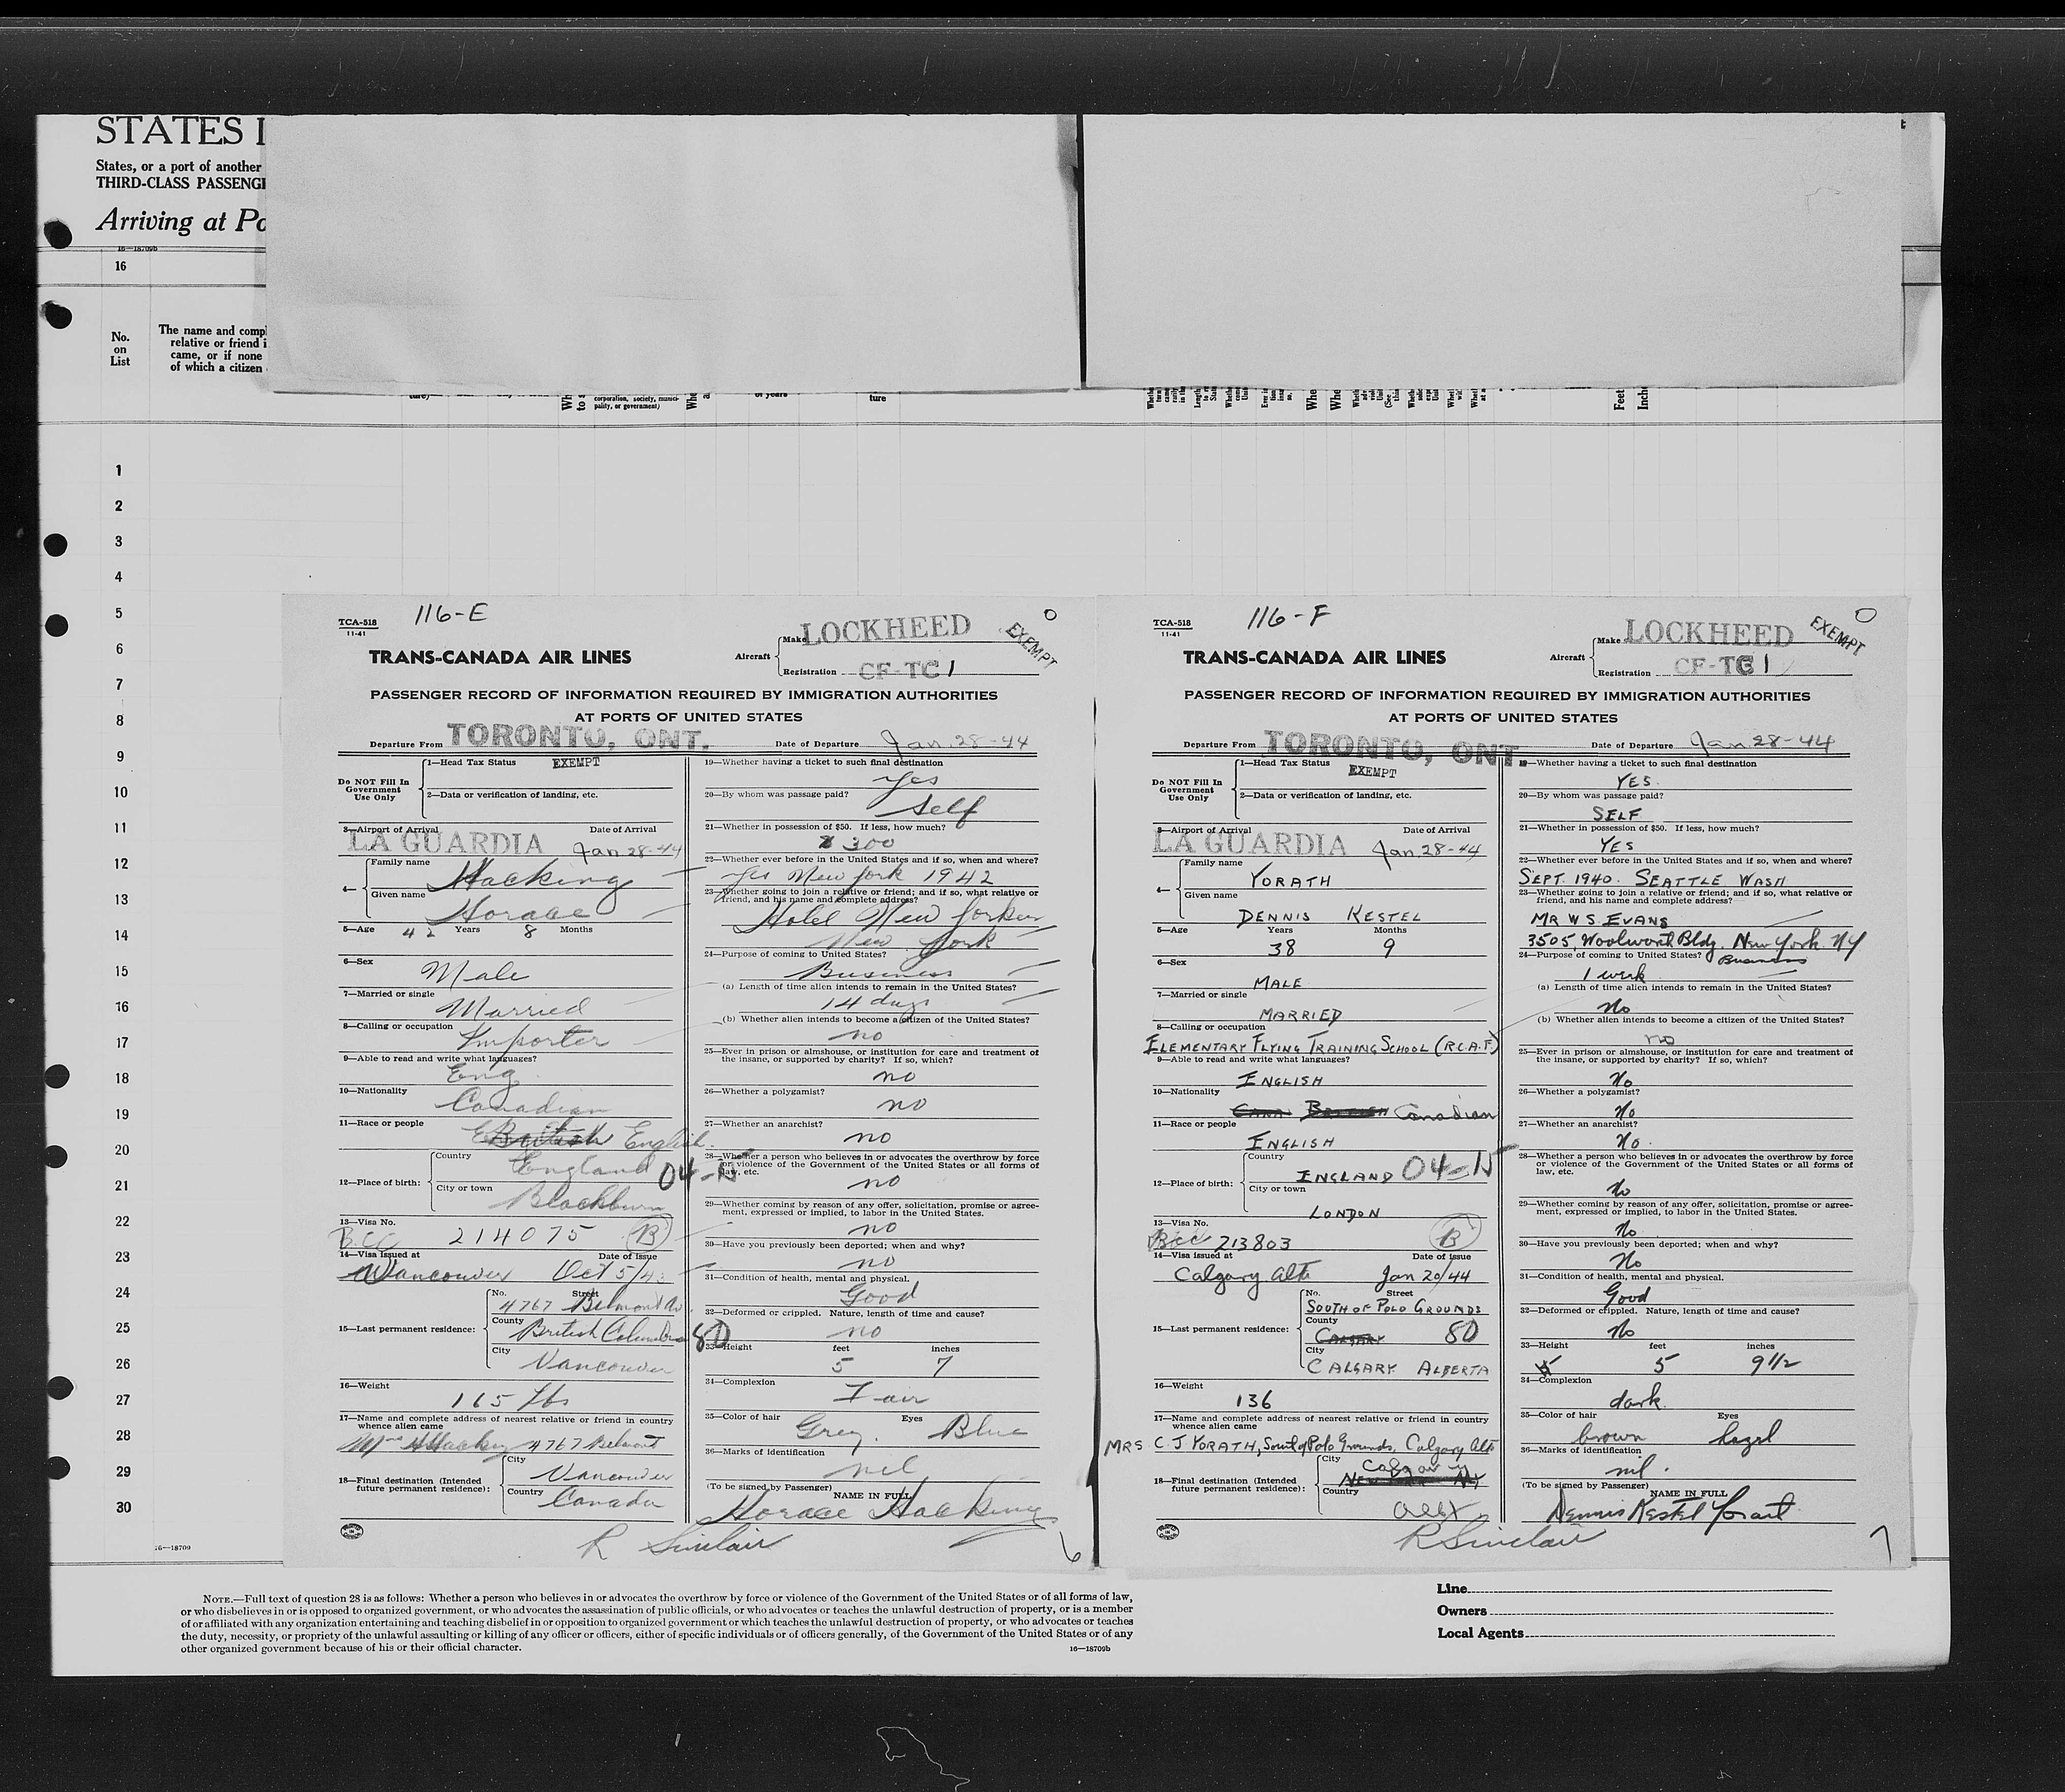 STATES I
States, or a port of another
THIRD-CLASS PASSENGE
Arriving at Po
16—18709b
16
No.
on
List
The name and compl
relative or friend i
came, or if none
of which a citizen
ture)
corporation, society, munici-
pality, or government)
of years
ture
Feet
Inch
1
2
3
4
5
6
7
8
9
10
11
12
13
14
15
16
17
18
19
20
21
22
23
24
25
26
27
28
29
30
16—18709
TCA-518
11-41
116-E
TRANS-CANADA AIR LINES
Aircraft
Make LOCKHEED
Registration CF-TC1
EXEMPT
PASSENGER RECORD OF INFORMATION REQUIRED BY IMMIGRATION AUTHORITIES
AT PORTS OF UNITED STATES
Departure From TORONTO, ONT.
Date of Departure Jan. 28-44
Do NOT Fill In
Government
Use Only
1—Head Tax Status EXEMPT
2—Data or verification of landing, etc.
3—Airport of Arrival Date of Arrival
LA GUARDIA Jan 28-44
4—
Family name
Hacking
Given name
Horace
5—Age 42 Years 8 Months
6—Sex
Male
7—Married or single
Married
8—Calling or occupation
Importer
9—Able to read and write what languages?
Eng
10—Nationality
Canadian
11—Race or people
British English
12—Place of birth:
Country
England 04-N
City or town
Blackburn
13—Visa No.
B.C.C 214075 B
14—Visa issued at Date of issue
Vancouver Oct 5/43
15—Last permanent residence:
No. Street
4767 Belmont Av.
County
British Columbia 80
City
Vancouver
16—Weight
165 lbs
17—Name and complete address of nearest relative or friend in country
whence alien came
Mrs H Hacking 4767 Belmont
18—Final destination (Intended
future permanent residence):
City
Vancouver
Country
Canada
19—Whether having a ticket to such final destination
yes
20—By whom was passage paid?
Self
21—Whether in possession of $50. If less, how much?
$300
22—Whether ever before in the United States and if so, when and where?
Yes New York 1942
23—Whether going to join a relative or friend; and if so, what relative or
friend, and his name and complete address?
Hotel New Yorker
New York
24—Purpose of coming to United States?
Business
(a) Length of time alien intends to remain in the United States?
14 days
(b) Whether alien intends to become a citizen of the United States?
no
25—Ever in prison or almshouse, or institution for care and treatment of
the insane, or supported by charity? If so, which?
no
26—Whether a polygamist?
no
27—Whether an anarchist?
no
28—Whether a person who believes in or advocates the overthrow by force
or violence of the Government of the United States or all forms of
law, etc.
no
29—Whether coming by reason of any offer, solicitation, promise or agree-
ment, expressed or implied, to labor in the United States.
no
30—Have you previously been deported; when and why?
no
31—Condition of health, mental and physical.
Good
32—Deformed or crippled. Nature, length of time and cause?
no
33—Height feet inches
5 7
34—Complexion
Fair
35—Color of hair Eyes
Grey. Blue
36—Marks of identification
nil
(To be signed by Passenger) NAME IN FULL
Horace Hacking
R Sinclair
6
TCA-518
11-41
116-F
TRANS-CANADA AIR LINES
Aircraft
Make LOCKHEED
Registration CF-TC1
EXEMPT
PASSENGER RECORD OF INFORMATION REQUIRED BY IMMIGRATION AUTHORITIES
AT PORTS OF UNITED STATES
Departure From TORONTO, ONT.
Date of Departure Jan. 28-44
Do NOT Fill In
Government
Use Only
1—Head Tax Status
EXEMPT
2—Data or verification of landing, etc.
3—Airport of Arrival Date of Arrival
LA GUARDIA Jan 28-44
4—
Family name
YORATH
Given name
DENNIS KESTEL
5—Age Years Months
38 9
6—Sex
MALE
7—Married or single
MARRIED
8—Calling or occupation
ELEMENTARY FLYING TRAINING SCHOOL (R.C.A.F.)
9—Able to read and write what languages?
ENGLISH
10—Nationality
CANA BRITISH Canadian
11—Race or people
ENGLISH
12—Place of birth:
Country
ENGLAND 04-N
City or town
LONDON
13—Visa No.
BCC 213803 B
14—Visa issued at Date of issue
Calgary Alta Jan 20/44
15—Last permanent residence:
No. Street
SOUTH OF POLO GROUNDS
County
CALGARY 80
City
CALGARY ALBERTA
16—Weight
136
17—Name and complete address of nearest relative or friend in country
whence alien came
MRS C.J YORATH, South of Polo Grounds, Calgary Alta
18—Final destination (Intended
future permanent residence):
City
Calgary
NEW YORK NY
Country
Alta
19—Whether having a ticket to such final destination
YES.
20—By whom was passage paid?
SELF
21—Whether in possession of $50. If less, how much?
YES
22—Whether ever before in the United States and if so, when and where?
SEPT. 1940. SEATTLE WASH
23—Whether going to join a relative or friend; and if so, what relative or
friend, and his name and complete address?
MR W S. EVANS
3505, Woolworth Bldg. New York. NY
24—Purpose of coming to United States? Business
1 week
(a) Length of time alien intends to remain in the United States?
No
(b) Whether alien intends to become a citizen of the United States?
no
25—Ever in prison or almshouse, or institution for care and treatment of
the insane, or supported by charity? If so, which?
No
26—Whether a polygamist?
No
27—Whether an anarchist?
No.
28—Whether a person who believes in or advocates the overthrow by force
or violence of the Government of the United States or all forms of
law, etc.
No
29—Whether coming by reason of any offer, solicitation, promise or agree-
ment, expressed or implied, to labor in the United States.
No.
30—Have you previously been deported; when and why?
No
31—Condition of health, mental and physical.
Good
32—Deformed or crippled. Nature, length of time and cause?
No
33—Height feet inches
5 9 1/2
34—Complexion
dark.
35—Color of hair Eyes
brown hazel
36—Marks of identification
nil.
(To be signed by Passenger) NAME IN FULL
Dennis Kestel Yorath
R Sinclair
7
NOTE.—Full text of question 28 is as follows: Whether a person who believes in or advocates the overthrow by force or violence of the Government of the United States or of all forms of law,
or who disbelieves in or is opposed to organized government, or who advocates the assassination of public officials, or who advocates or teaches the unlawful destruction of property, or is a member
of or affiliated with any organization entertaining and teaching disbelief in or opposition to organized government or which teaches the unlawful destruction of property, or who advocates or teaches
the duty, necessity, or propriety of the unlawful assaulting or killing of any officer or officers, either of specific individuals or of officers generally, of the Government of the United States or of any
other organized government because of his or their official character.
16—18709b
Line
Owners
Local Agents